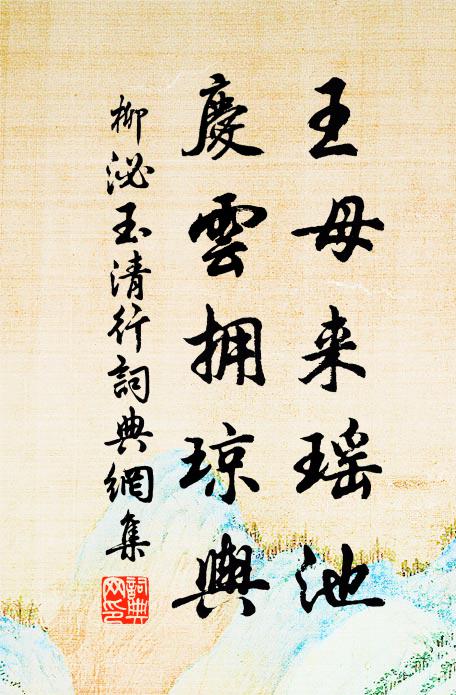 王母来瑶池
慶雲拥琼輿
柳泌玉清行詞典網集
詞典